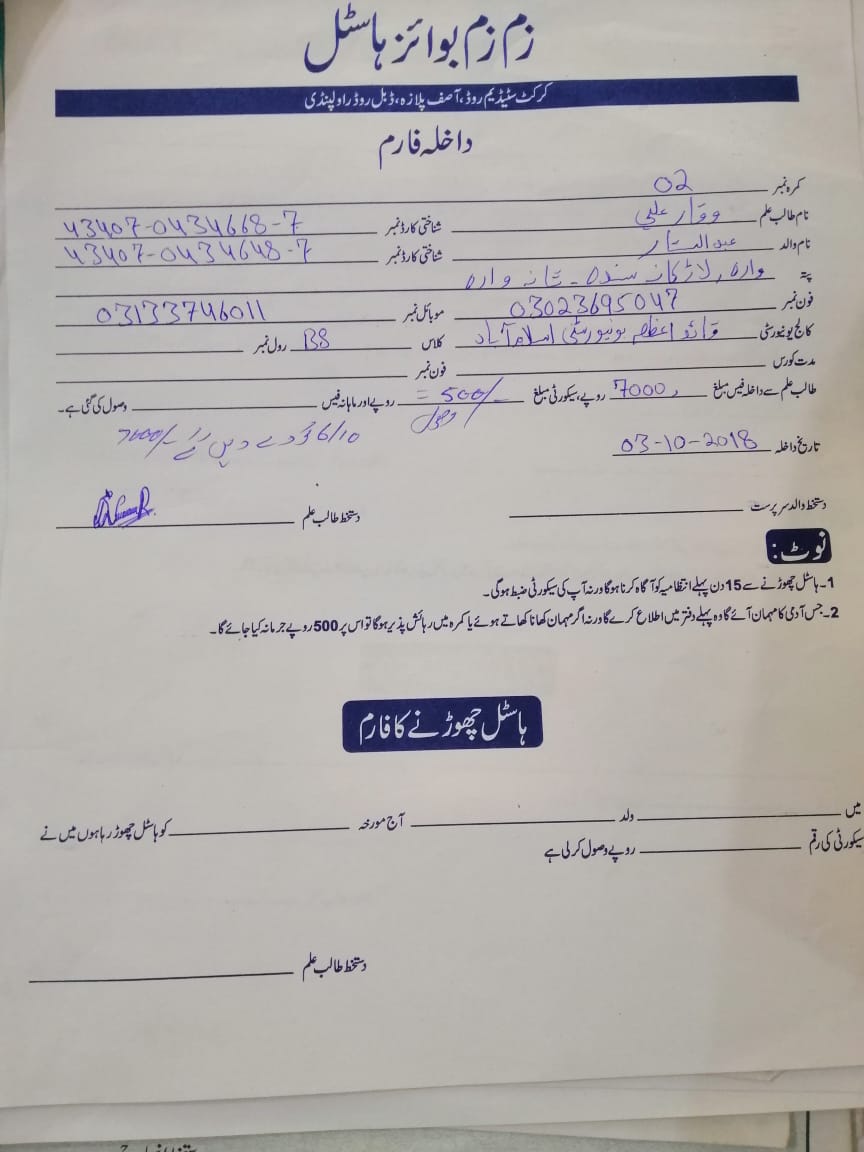 زم زم بوائز ہاسٹل
کرکٹ سٹیڈیم روڈ، آصف پلازہ، ڈبل روڈ راولپنڈی
داخلہ فارم
کمرہ نمبر 02
نام طالب علم وقار علی شناختی کارڈ نمبر 43407-0434668-7
نام والد عبدالستار شناختی کارڈ نمبر 43407-0434648-7
پتہ وارہ لاڑکانہ سندھ - تانہ وارہ
فون نمبر 03023695047 موبائل نمبر 03133746011
کالج یونیورسٹی قائد اعظم یونیورسٹی اسلام آباد کلاس BS رول نمبر
مدت کورس فون نمبر
طالب علم سے داخلہ فیس مبلغ 7000 روپے، سیکورٹی مبلغ 500/- = روپے اور ماہانہ فیس وصول کی گئی ہے۔
وصول
6/10 کو دے دیں گے 7000/-
تاریخ داخلہ 03-10-2018
دستخط والد سرپرست دستخط طالب علم
نوٹ:
1- ہاسٹل چھوڑنے سے 15 دن پہلے انتظامیہ کو آگاہ کرنا ہوگا ورنہ آپ کی سیکورٹی ضبط ہوگی۔
2- جس آدمی کا مہمان آئے گا وہ پہلے دفتر میں اطلاع کرے گا ورنہ اگر مہمان کھانا کھاتے ہوئے یا کمرہ میں رہائش پذیر ہوگا تو اس پر 500 روپے جرمانہ کیا جائے گا۔
ہاسٹل چھوڑنے کا فارم
میں ولد آج مورخہ کو ہاسٹل چھوڑ رہا ہوں میں نے
سیکورٹی کی رقم روپے وصول کرلی ہے
دستخط طالب علم